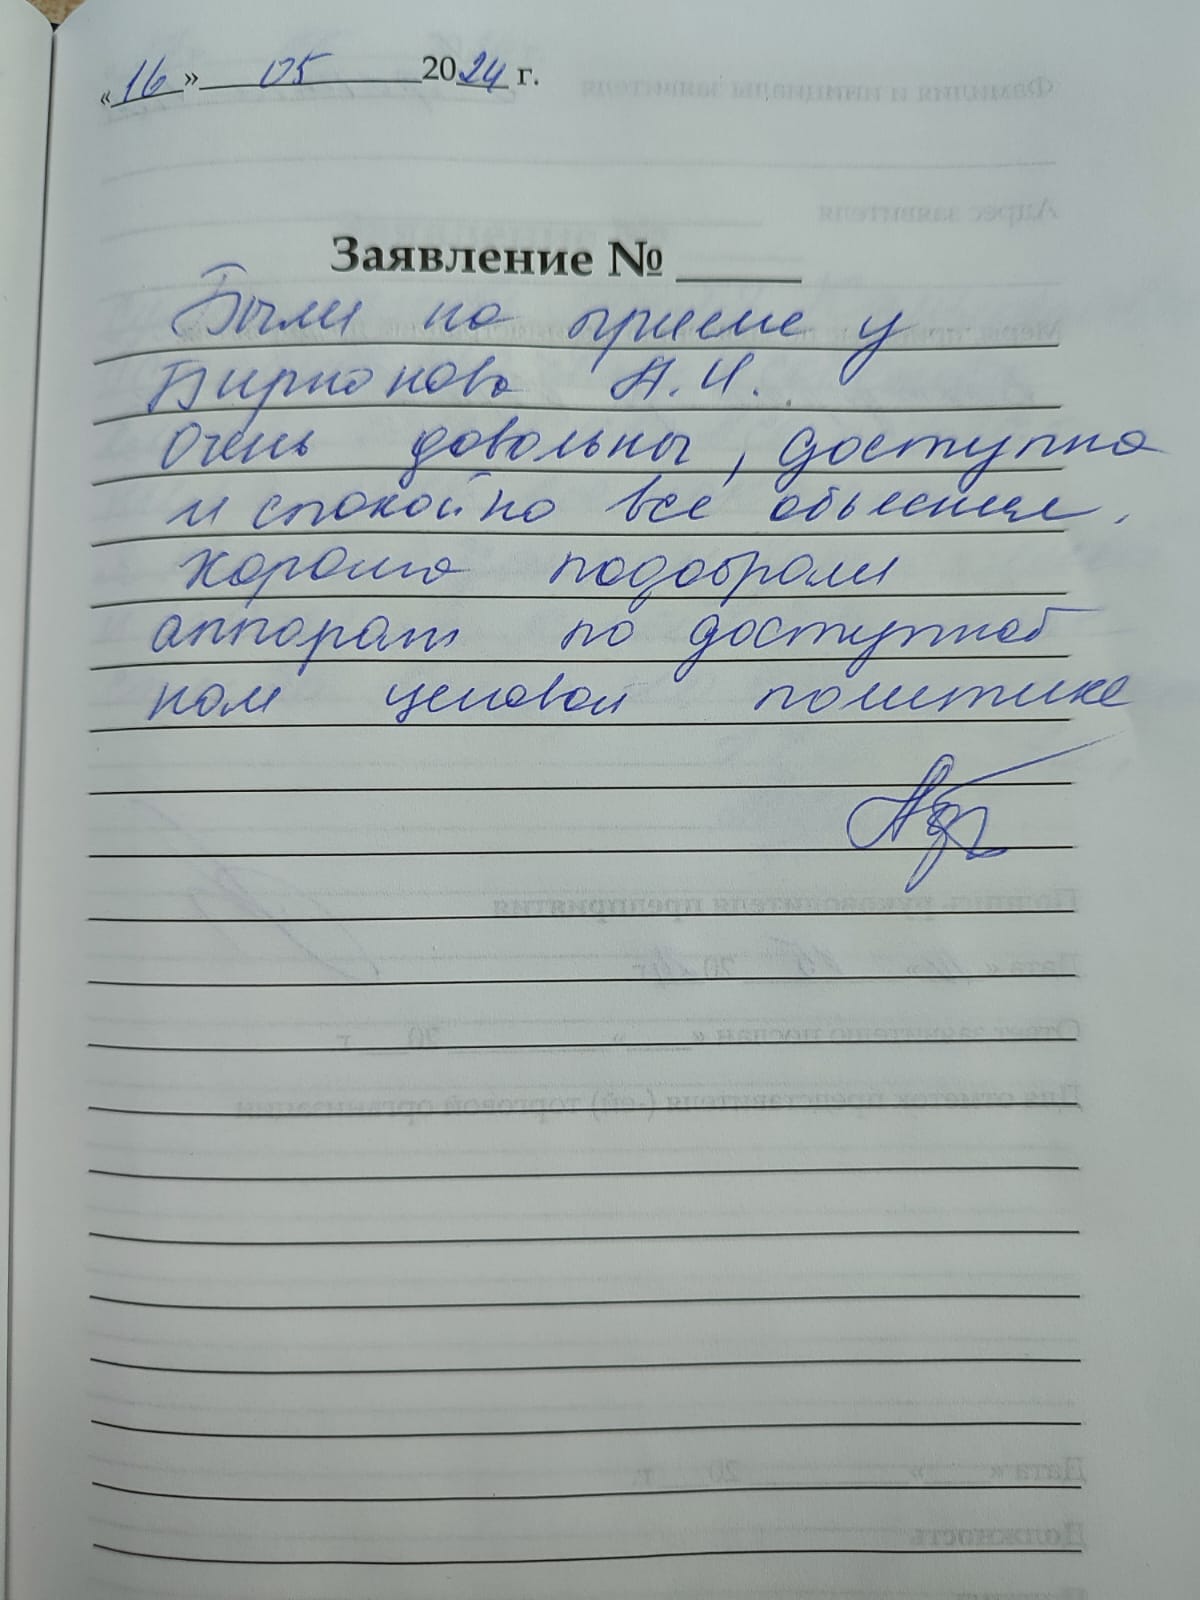 «16» 05 2024 г.
Заявление № ____
Были на приеме у
Бирюкова А.И.
Очень довольны, доступно
и спокойно все объяснил.
Хорошо подобрали
аппарат по доступной
нам ценовой политике